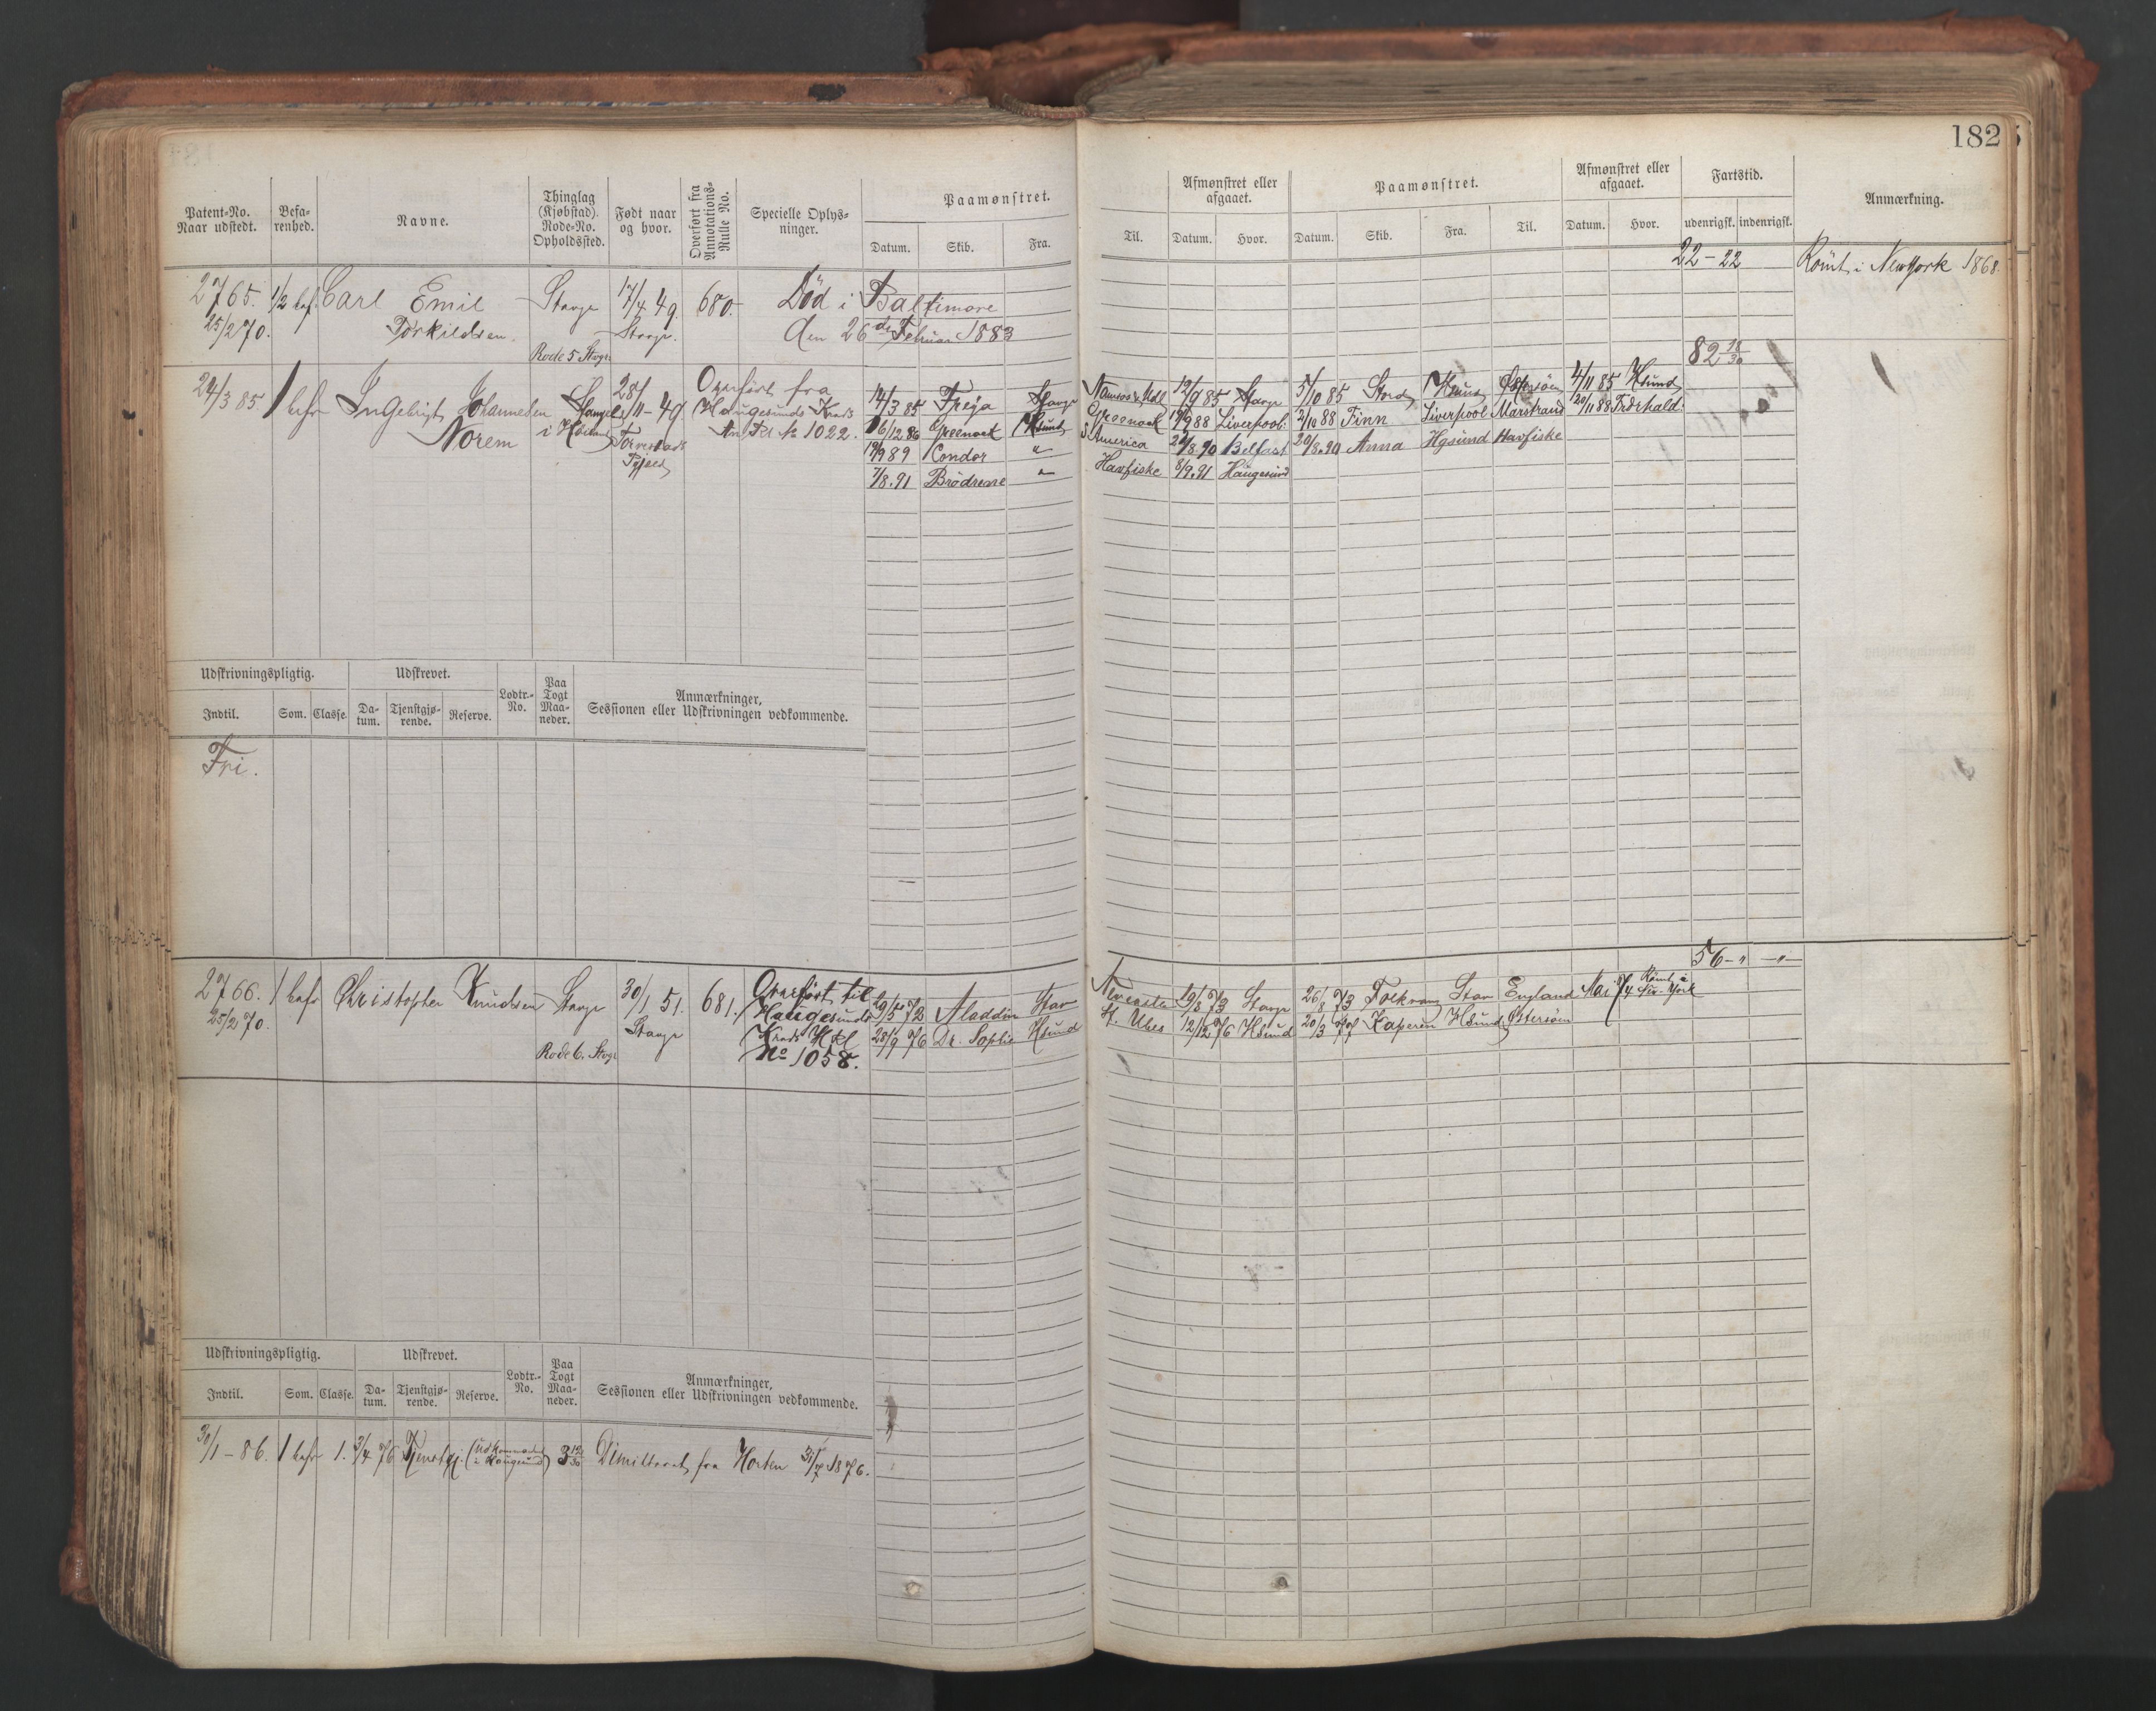 182
Patent-No. Naar udstedt. Befarenhed. Navne. Thinglag (Kjøbstad). Rode-No. Opholdssted. Født naar og hvor. Overført fra Annotations-Rulle No. Specielle Oplysninger. Paamønstret. Datum. Skib. Fra.
Til. Afmønstret eller afgaaet. Datum. Hvor. Paamønstret. Datum. Skib. Fra. Til. Afmønstret eller afgaaet. Datum. Hvor. Fartstid. udenrigsk. indenrigsk. Anmærkning.
22-22 Römt i New York 1868.
2765. 1/2 bef. Carl Emil Stavgr 17/4 49. 680. Död i Baltimore
25/2 70. Torkildsen. Stavgr. den 26de Februar 1883
Rode 5 Stvgr
82 18/30
24/3 85 1 bef Ingebrigt Johannesen 28/11-49 Overført fra Haugesunds Krds
Norem Torvestads No 1022.
14/3 85 Freja Stavgr 12/9 85 Stavgr 5/10 85 Stord Hsund Østersöen 4/11 85 Hsund
6/12 86 Greenock Hsund Greenock 19/9 88 Liverpool 2/10 88 Finn Liverpool Marstrand 20/11 88 Fredrhald.
19/9 89 Condor " S. America 20/8 90 Belfast 20/8.90 Anna Hgsund Havfiske
7/8.91 Brödrene " Havfiske 8/9.91 Haugesund
Udskrivningspligtig. Udskrevet. Lodtr.-No. Paa Togt Maaneder. Anmærkninger, Sessionen eller Udskrivningen vedkommende.
Indtil. Som. Classe. Datum. Tjenstgjørende. Reserve.
Fri.
56-"-"-
2766. 1 bef Christopher Knudsen Stavgr 30/1 51. 681. Overført til
25/2 70. Stavgr Haugesunds
Rode 6. Stvgr Krds Hrl
No 1058.
29/5 72 Aladdin Stav 19/8 73 Stavgr 26/8 73 Folkvang Stav England Mai 74 Römt i New-York
28/9 76 Dr. Sophie Hsund St. Ubes 12/12 76 Hsund 20/3 77 Kaperen Hsund Østersöen
Udskrivningspligtig. Udskrevet. Lodtr.-No. Paa Togt Maaneder. Anmærkninger, Sessionen eller Udskrivningen vedkommende.
Indtil. Som. Classe. Datum. Tjenstgjørende. Reserve.
30/1-86. 1 bef 1. 3/4 76 Tjenstgj. 3 Dimitteret fra Horten 31/7 1876.